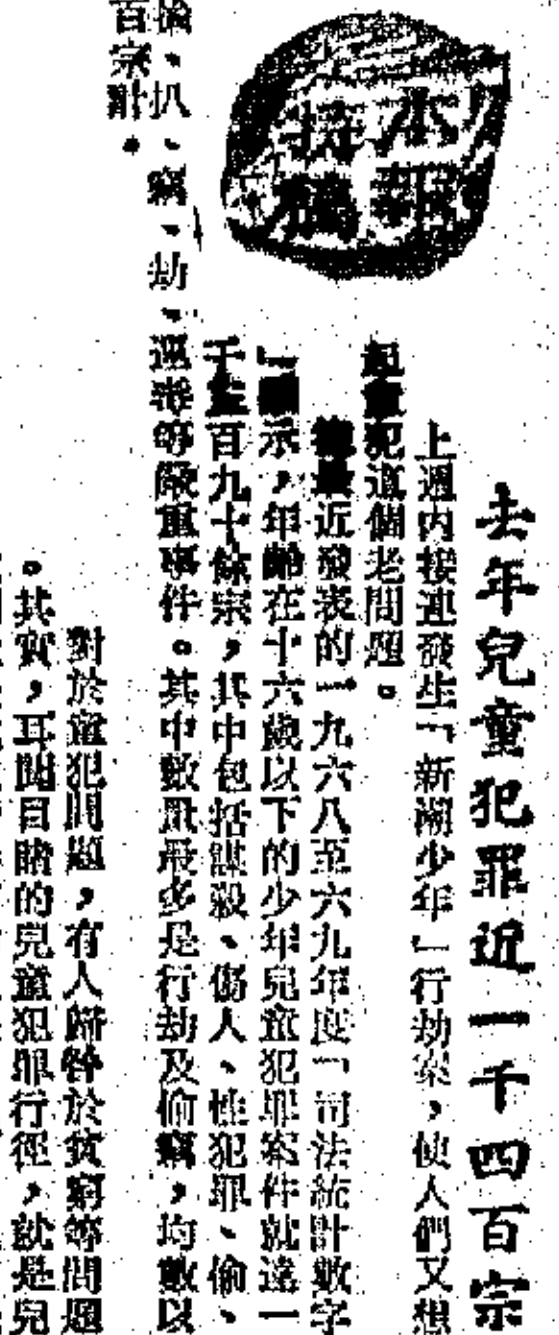 本報
特稿
去年兒童犯罪近一千四百宗
上週內接連發生「新潮少年」行劫案,使人們又想
起童犯這個老問題。
據最近發表的一九六八至六九年度「司法統計數字
」顯示,年齡在十六歲以下的少年兒童犯罪案件就達一
千三百九十餘宗,其中包括謀殺、傷人、性犯罪、偷、
搶、扒、竊、劫、運毒等嚴重事件。其中數量最多是行劫及偷竊,均數以
百宗計。
對於童犯問題,有人歸咎於貧窮等問題
。其實,耳聞目睹的兒童犯罪行徑,就是兒